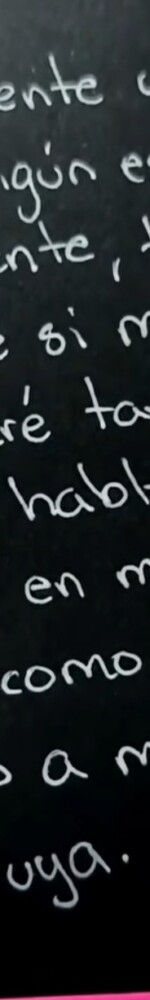 ente
gún e
nte,
si m
ré ta
habl
en m
como
o a m
uya.